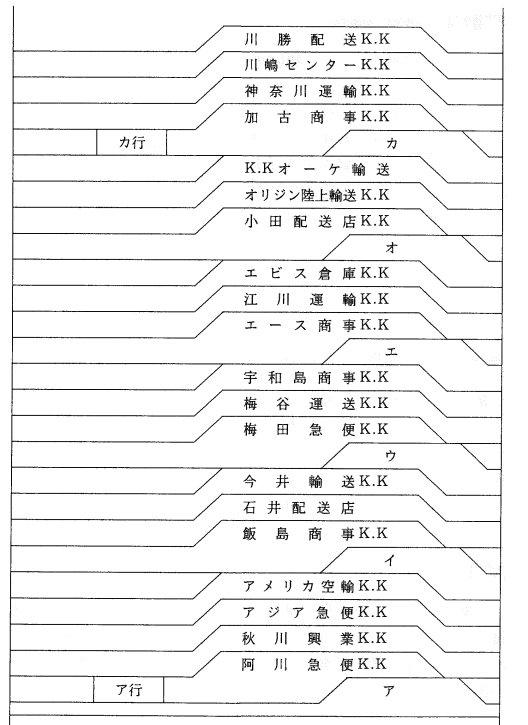 川勝配送K.K
川嶋センターK.K
神奈川運輸K.K
加古商事K.K
カ行 カ
K.Kオーケ輸送
オリジン陸上輸送K.K
小田配送店K.K
オ
エビス倉庫K.K
江川運輸K.K
エース商事K.K
エ
宇和島商事K.K
梅谷運送K.K
梅田急便K.K
ウ
今井輸送K.K
石井配送店
飯島商事K.K
イ
アメリカ空輸K.K
アジア急便K.K
秋川興業K.K
阿川急便K.K
ア行 ア